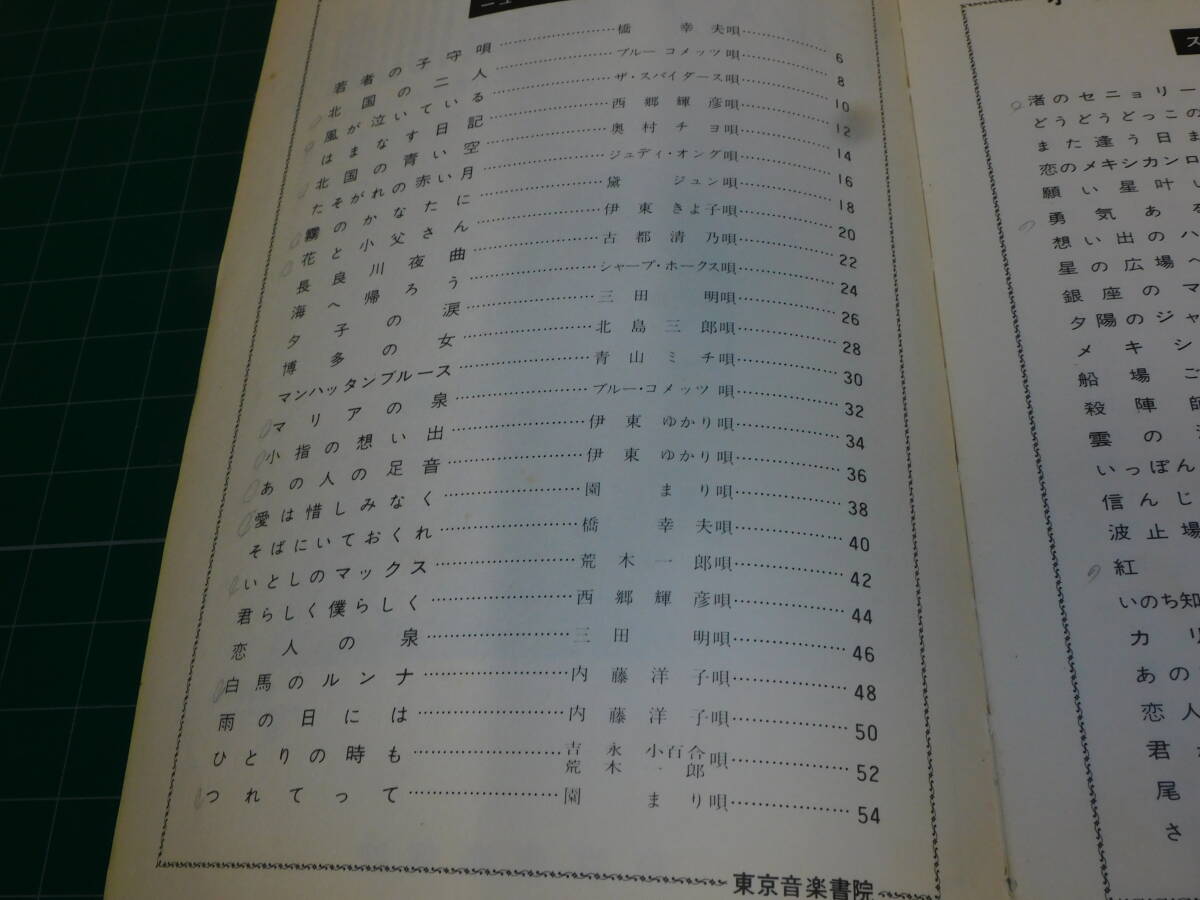 ニュー
若者の子守唄 橋幸夫唄 6
北国の二人 ブルーコメッツ唄 8
風が泣いている ザ・スパイダース唄 10
はまなす日記 西郷輝彦唄 12
北国の青い空 奥村チヨ唄 14
たそがれの赤い月 ジュディ・オング唄 16
霧のかなたに 黛ジュン唄 18
花と小父さん 伊東きよ子唄 20
長良川夜曲 古都清乃唄 22
海へ帰ろう シャープ・ホークス唄 24
夕子の涙 三田明唄 26
博多の女 北島三郎唄 28
マンハッタンブルース 青山ミチ唄 30
マリアの泉 ブルー・コメッツ唄 32
小指の想い出 伊東ゆかり唄 34
あの人の足音 伊東ゆかり唄 36
愛は惜しみなく 園まり唄 38
そばにいておくれ 橋幸夫唄 40
いとしのマックス 荒木一郎唄 42
君らしく僕らしく 西郷輝彦唄 44
恋人の泉 三田明唄 46
白馬のルンナ 内藤洋子唄 48
雨の日には 内藤洋子唄 50
ひとりの時も 吉永小百合 荒木一郎 唄 52
つれてって 園まり唄 54
東京音楽書院
ス
渚のセニョリー
どうどうどっこの
また逢う日ま
恋のメキシカンロ
願い星叶い
勇気ある
想い出のハ
星の広場へ
銀座のマ
夕陽のジャ
メキシ
船場ご
殺陣師
雲の
いっぽん
信んじ
波止場
紅
いのち知
カリ
あの
恋人
君
尾
さ